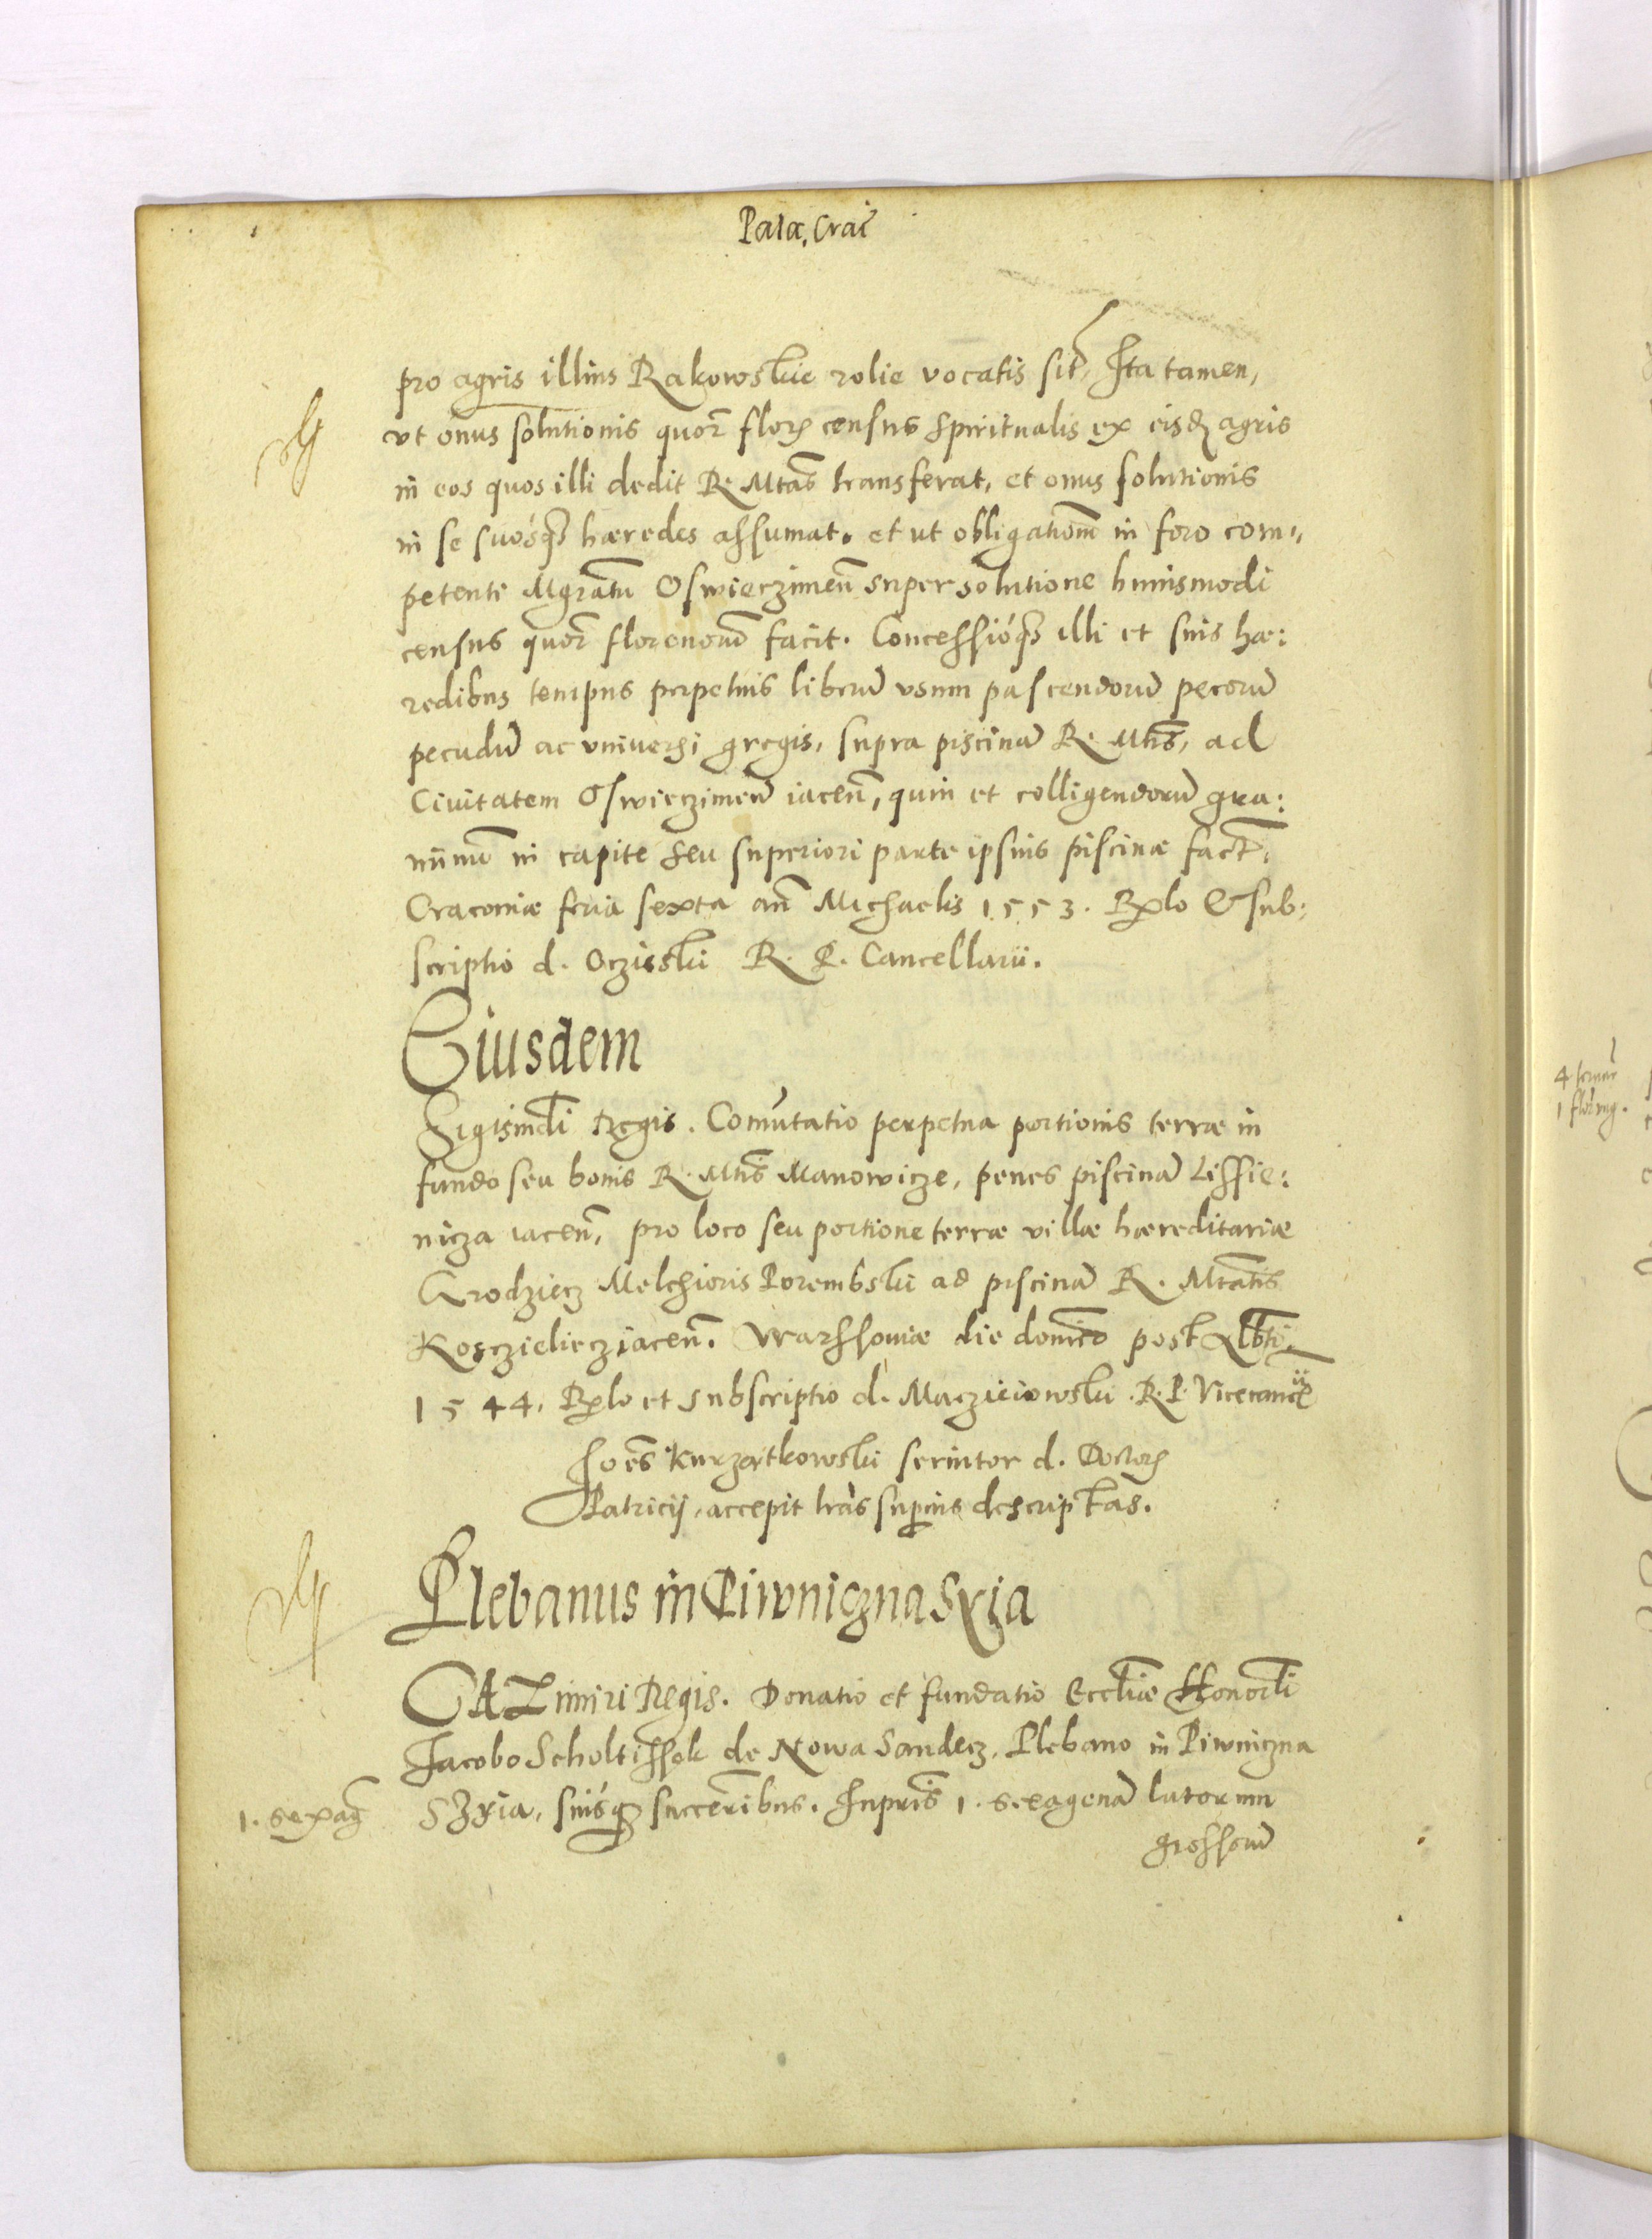 Pala. Crac̃
pro agris illius Rakowskie rolie vocatis sitɂ, Ita tamen,
vt onus solutionis quorꝫ floꝝ census spiritualis ex eisdꝫ agris
in eos quos illi dedit R. Mtas̃ transferat, et onus solutionis
in se suósqꝫ hæredes assumat. et ut obligationẽ in foro com,,
petenti Mgratũ Oswieczimeñ super solutione huiusmodi
census quorꝫ florenorũ facit. Concessióqꝫ illi et suis hæ:
redibus tempus perpetuis liberũ vsum pascendorũ pecorũ
pecudũ ac vniuersi gregis, supra piscinã R. Mtis̃, ad
Ciuitatem Oswieczimeñ iaceñ, quin et colligendorũ gra:
minum in capite seu superiori parte ipsius piscinæ fact̃,
Cracouiæ feria sexta añ Michaelis 1553. Rꝑlo & sub:
scriptio d. Oczisski R. P. Cancellarii.
Eiusdem
Sigismdĩ Regis. Comũtatio perpetua portionis terræ in
fundo seu bonis R. Mtis̃ Manowicze, penes piscinã Lissie:
nicza iaceñ, pro loco seu portione terræ villæ hæreditariæ
Grodziecz Melchioris Porembski ad piscinã R. Mtatis̃
Kosczieliecz iaceñ. Warssouiæ die domĩco post Albti.
1544. Rꝑlo et subscriptio d. Maczieiowski R. P. Vicecancelii
Joẽs Kurzatkowski seruitor d. Doctoꝝ
Patricij, accepit lrãs supius descriptas.
Plebanus in Piwniczna Sxia
CAZimiri Regis. Donatio et fundatio Eccliæ Honorli
Jacobo Scholtissek de Nowa Sandecz, Plebano in Piwniczna
1. sexag̃ SZyia, suisqꝫ succeribus. Inpris̃ 1. sexagenã latorum
grossorũ
4
1 flo